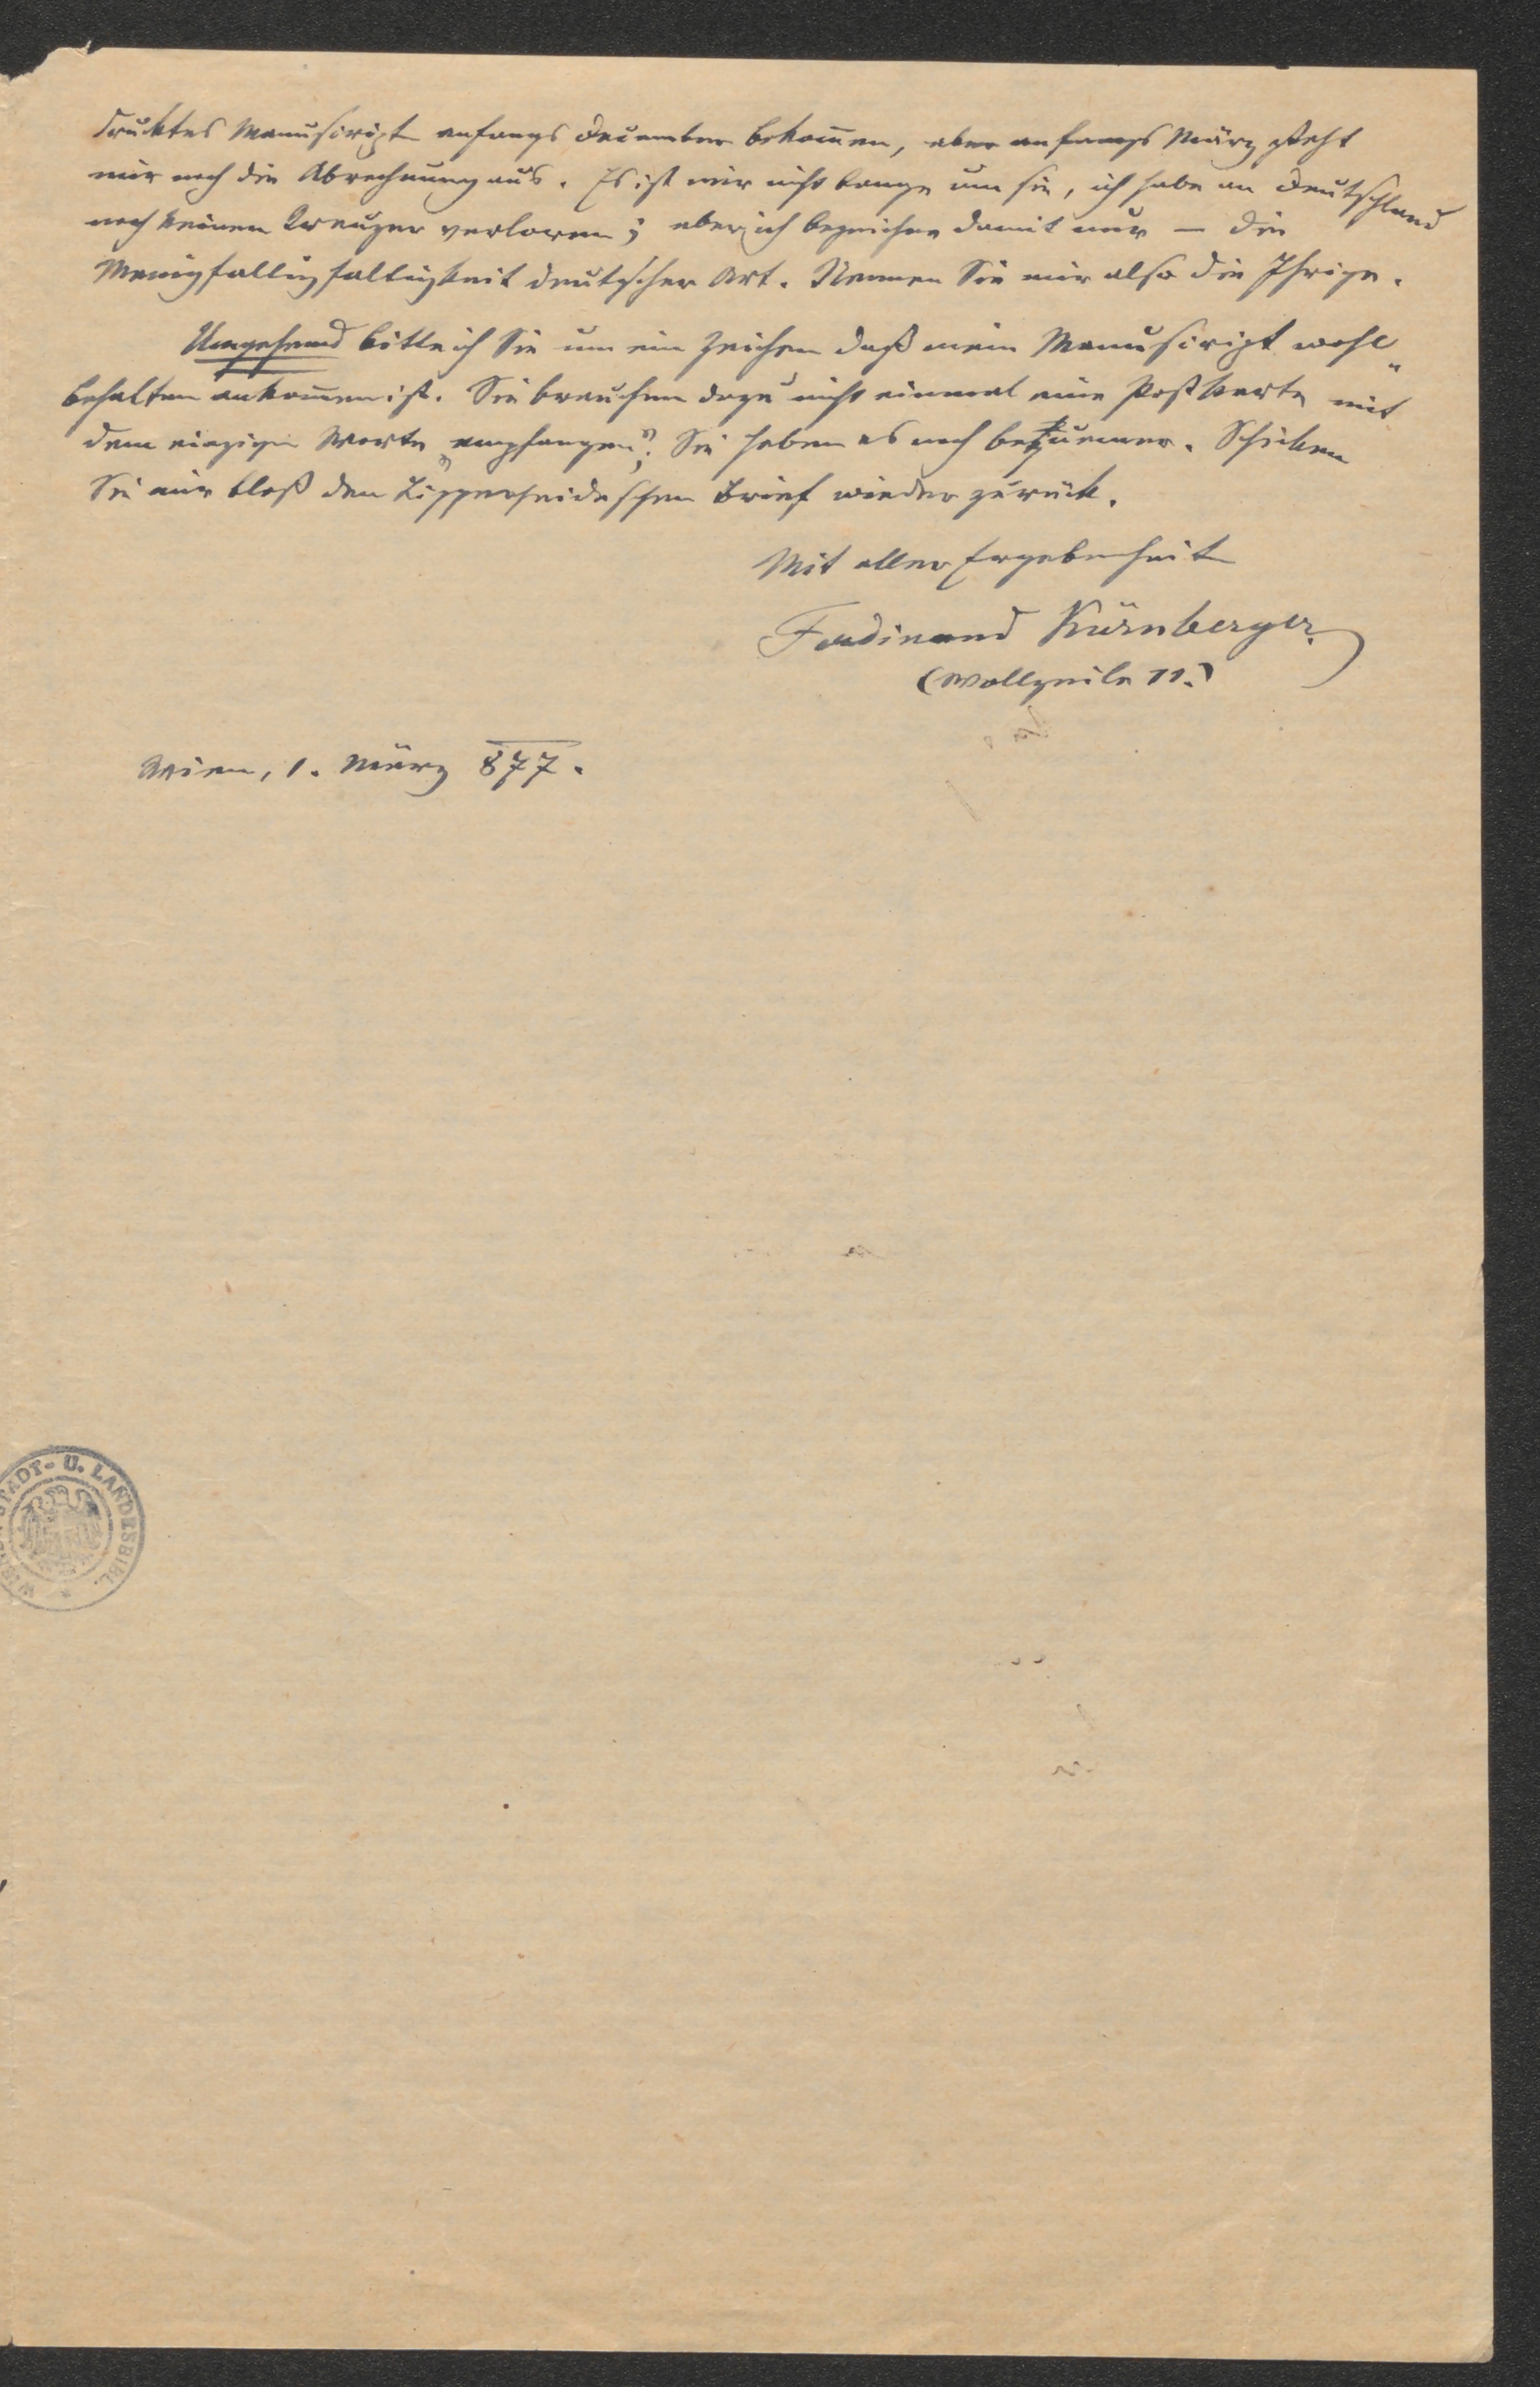 drucktes Manuscript anfangs December bekom̄en, aber anfangs März steht
mir noch die Abrechnung aus. Es ist mir nicht bange um sie, ich habe an Deutschland
noch keinen Kreuzer verloren; aber ich bezeichne damit nur — die
deutscher Art. Nennen Sie mir also die Ihrige.
Umgehend bitte ich Sie um ein Zeichen daß mein Manuscript wohl„
behalten ankom̄en ist. Sie brauchen dazu nicht einmal eine Postkarte mit
dem einzigen Worte „empfangen“; Sie haben es noch bequemer. Schicken
Sie mir bloß den Lipperheideschen Brief wieder zurück.
Mit aller Ergebenheit
Ferdinand Kürnberger.
(Wollzeile 11.)
Wien, 1. März 877.
STADT- U. LANDESBIBL.